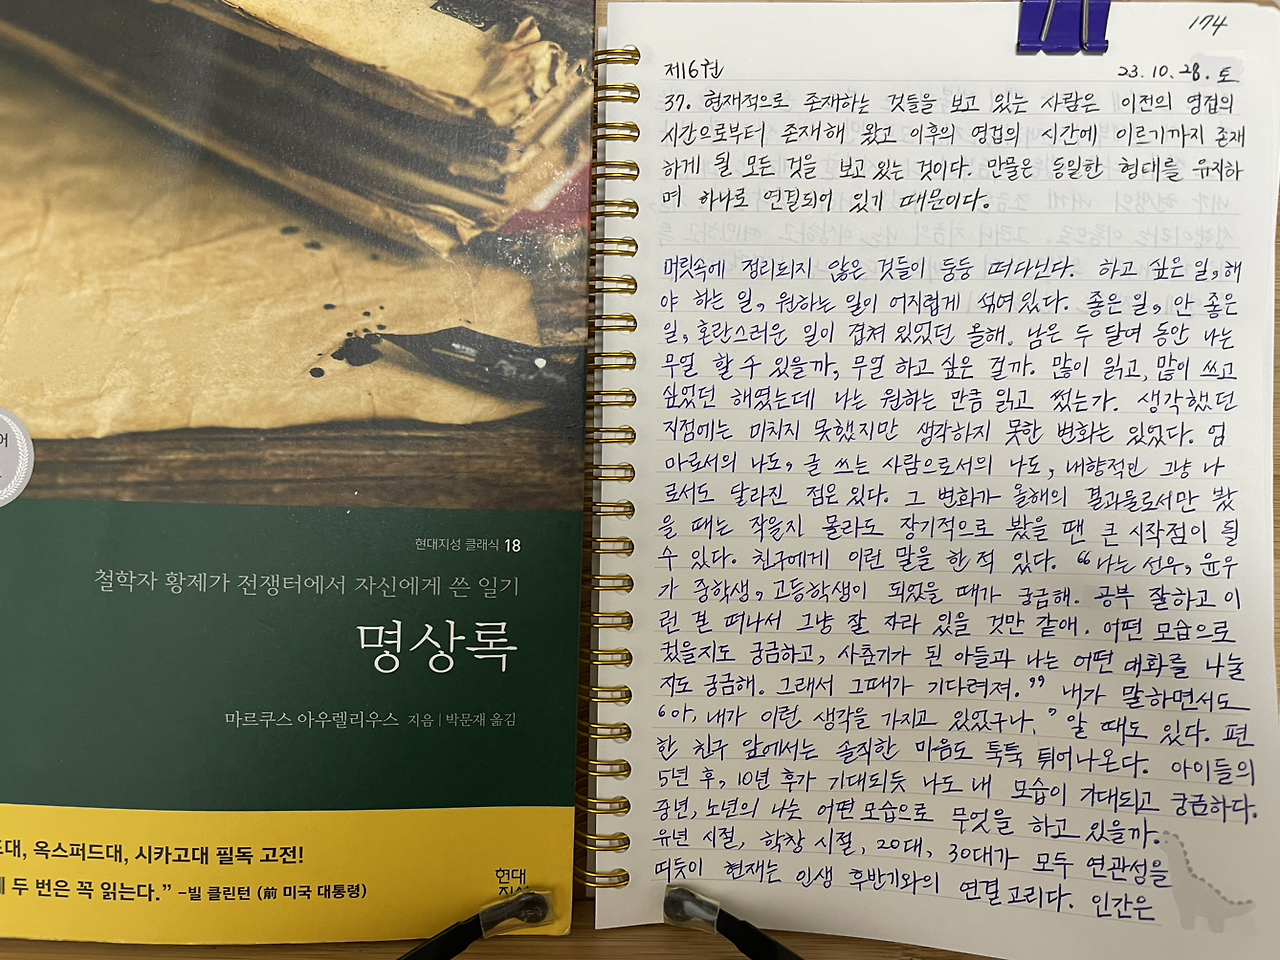 어
현대지성 클래식 18
철학자 황제가 전쟁터에서 자신에게 쓴 일기
명상록
마르쿠스 아우렐리우스 지음 | 박문재 옮김
드대, 옥스퍼드대, 시카고대 필독 고전!
두 번은 꼭 읽는다.” –빌 클린턴 (前 미국 대통령)
현대
지성
174
제6권 23.10.28. 토
37. 현재적으로 존재하는 것들을 보고 있는 사람은 이전의 영겁의
시간으로부터 존재해 왔고 이후의 영겁의 시간에 이르기까지 존재
하게 될 모든 것을 보고 있는 것이다. 만물은 동일한 형태를 유지하
며 하나로 연결되어 있기 때문이다.
머릿속에 정리되지 않은 것들이 둥둥 떠다닌다. 하고 싶은 일, 해
야 하는 일, 원하는 일이 어지럽게 섞여있다. 좋은 일, 안 좋은
일, 혼란스러운 일이 겹쳐 있었던 올해. 남은 두 달여 동안 나는
무얼 할 수 있을까, 무얼 하고 싶은 걸까. 많이 읽고, 많이 쓰고
싶었던 해였는데 나는 원하는 만큼 읽고 썼는가. 생각했던
지점에는 미치지 못했지만 생각하지 못한 변화는 있었다. 엄
마로서의 나도, 글 쓰는 사람으로서의 나도, 내향적인 그냥 나
로서도 달라진 점은 있다. 그 변화가 올해의 결과물로서만 봤
을 때는 작을지 몰라도 장기적으로 봤을 땐 큰 시작점이 될
수 있다. 친구에게 이런 말을 한 적 있다. “나는 선우, 윤우
가 중학생, 고등학생이 되었을 때가 궁금해. 공부 잘하고 이
런 본 떠나서 그냥 잘 자라 있을 것만 같애. 어떤 모습으로
컸을지도 궁금하고, 사춘기가 된 아들과 나는 어떤 대화를 나눌
지도 궁금해. 그래서 그때가 기다려져.” 내가 말하면서도
‘아, 내가 이런 생각을 가지고 있었구나.’ 알 때도 있다. 편
한 친구 앞에서는 솔직한 마음도 툭툭 튀어나온다. 아이들의
5년 후, 10년 후가 기대되듯 나도 내 모습이 기대되고 궁금하다.
중년, 노년의 나는 어떤 모습으로 무엇을 하고 있을까.
유년 시절, 학창 시절, 20대, 30대가 모두 연관성을
띠듯이 현재는 인생 후반기와의 연결고리다. 인간은